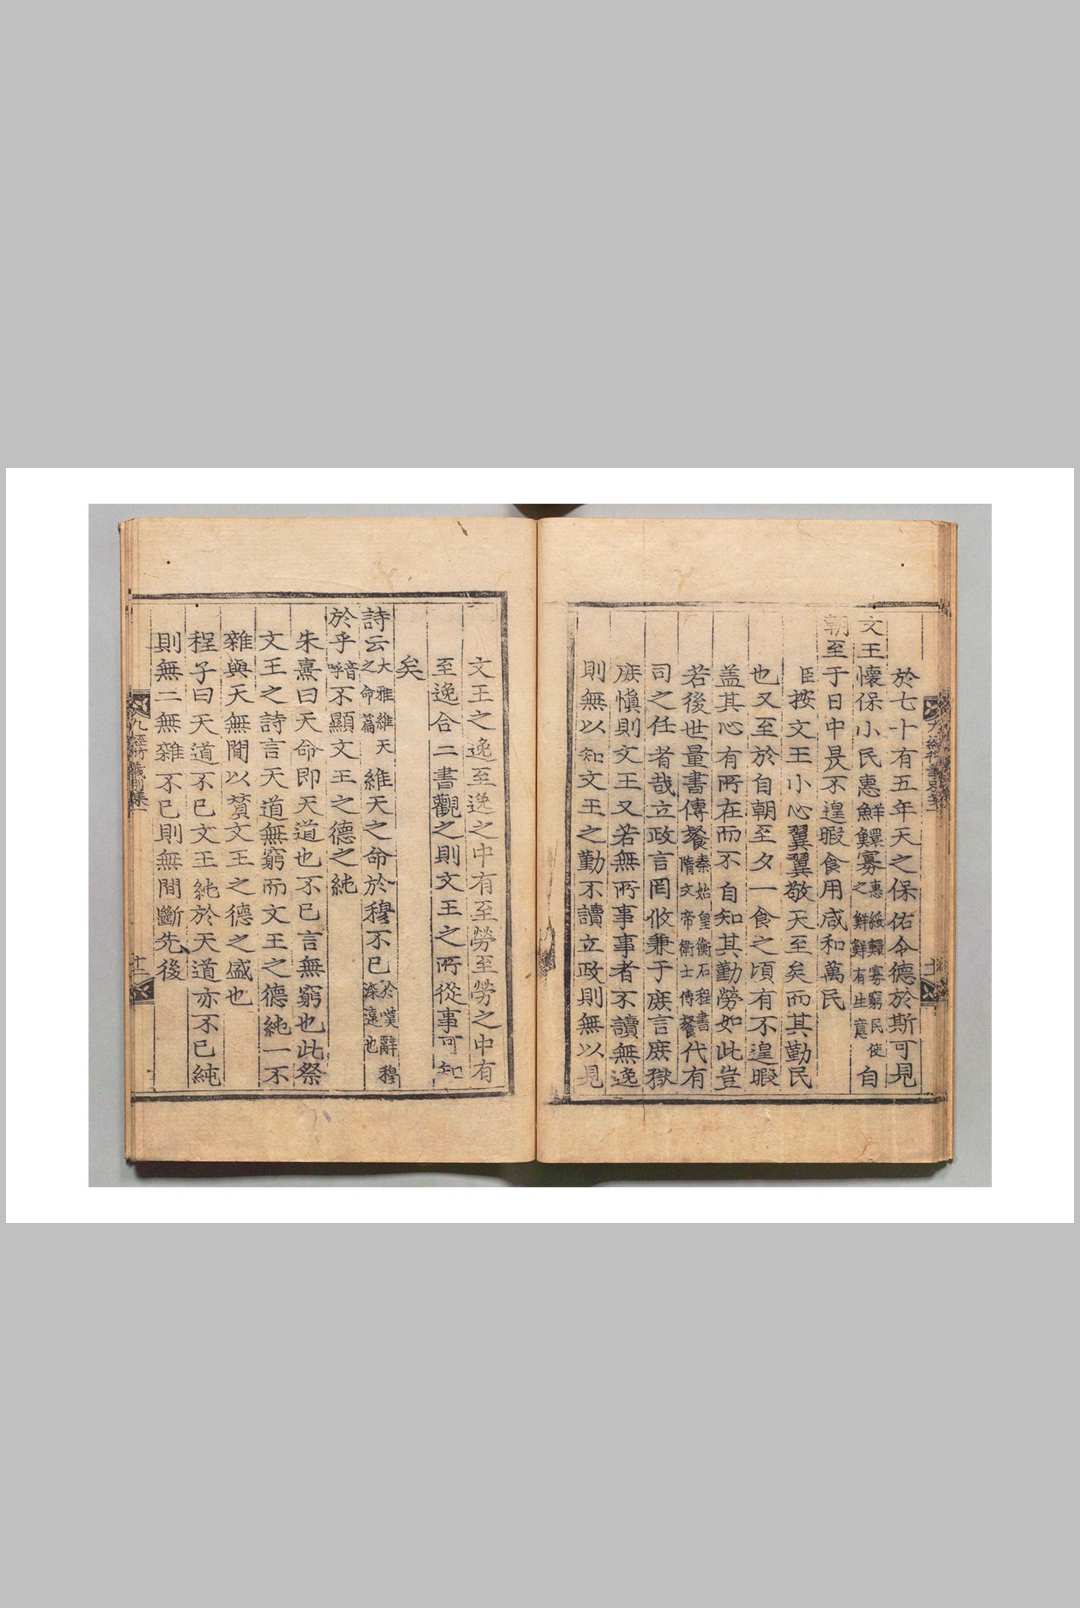 於七十有五年天之保佑令德於斯可見
文王懷保小民惠鮮鰥寡惠綏鰥寡窮民使之鮮鮮有生意自
朝至于日中昃不遑暇食用咸和萬民
臣按文王小心翼翼敬天至矣而其勤民
也又至於自朝至夕一食之頃有不遑暇
盖其心有所在而不自知其勤勞如此豈
若後世量書傳餐秦始皇衡石程書隋文帝衛士傳餐代有
司之任者哉立政言罔攸兼于庶言庶獄
庶愼則文王又若無所事事者不讀無逸
則無以知文王之勤不讀立政則無以見
文王之逸至逸之中有至勞至勞之中有
至逸合二書觀之則文王之所從事可知
矣
詩云大雅維天之命篇維天之命於穆不已於嘆辭穆深遠也
於乎音呼不顯文王之德之純
朱熹曰天命即天道也不已言無窮也此祭
文王之詩言天道無窮而文王之德純一不
雜與天無間以贊文王之德之盛也
程子曰天道不已文王純於天道亦不已純
則無二無雜不已則無間斷先後
十二